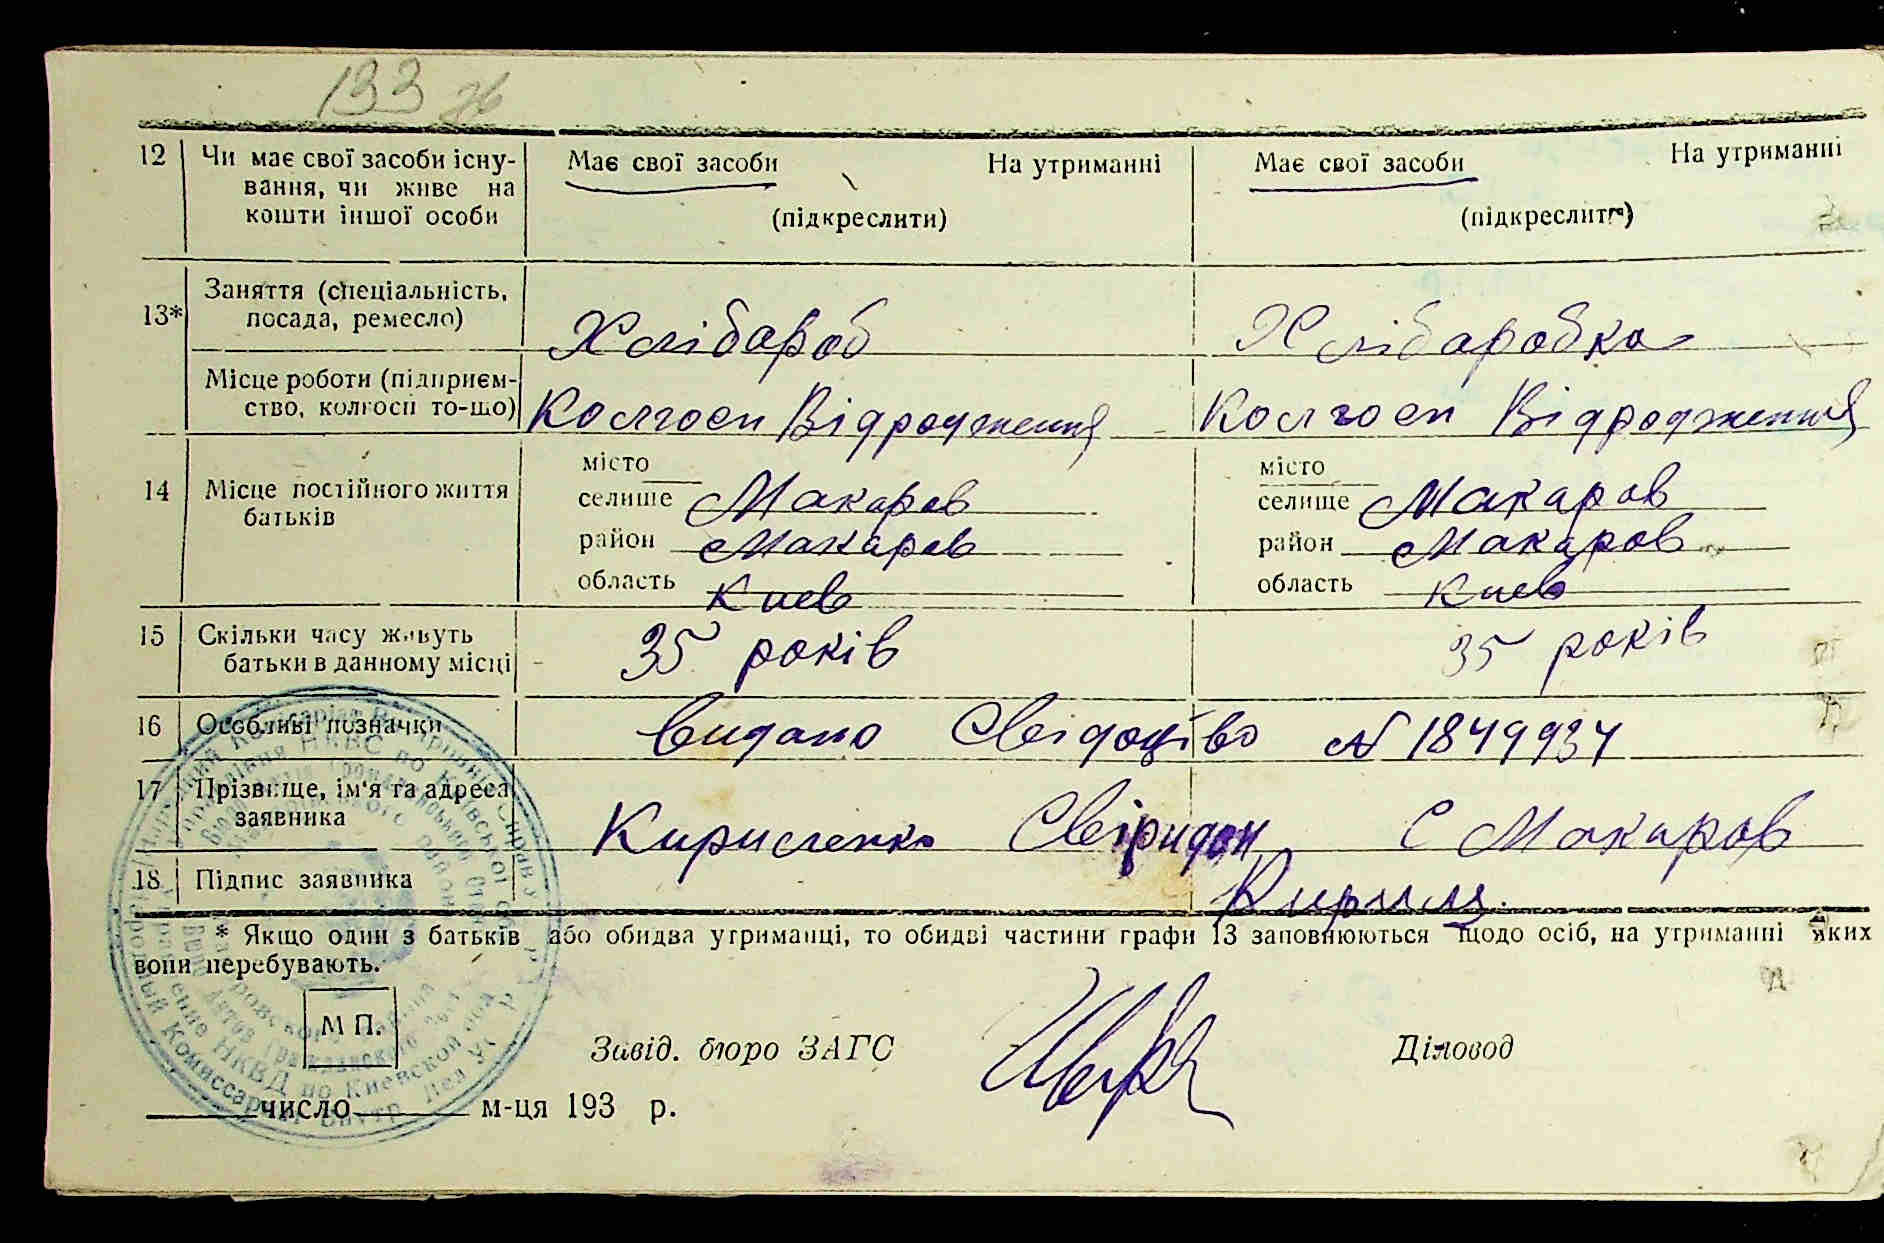 133 зв
12 Чи має свої засоби існу- Має свої засоби На утриманні Має свої засоби На утриманні
вання, чи живе на
кошти іншої особи (підкреслити) (підкреслити)
Заняття (спеціальність,
13* посада, ремесло) Хлібароб Хлібаробка
Місце роботи (підприєм-
ство, колгосп то-що) Колгосп Відродження Колгосп Відродження
місто місто
14 Місце постійного життя селище Макаров селище Макаров
батьків
район Макаров район Макаров
область Киев область Киев
15 Скільки часу живуть 35 років 35 років
батьки в данному місці
16 Особливі позначки Видано Свідоцтво N 1849934
17 Прізвище, ім'я та адреса
заявника Кириленко Свіридон С Макаров
18 Підпис заявника
* Якщо один з батьків або обидва утриманці, то обидві частини графи 13 заповнюються щодо осіб, на утриманні яких
вони перебувають.
М П.
Завід. бюро ЗАГС Діловод
число м-ця 193 р.